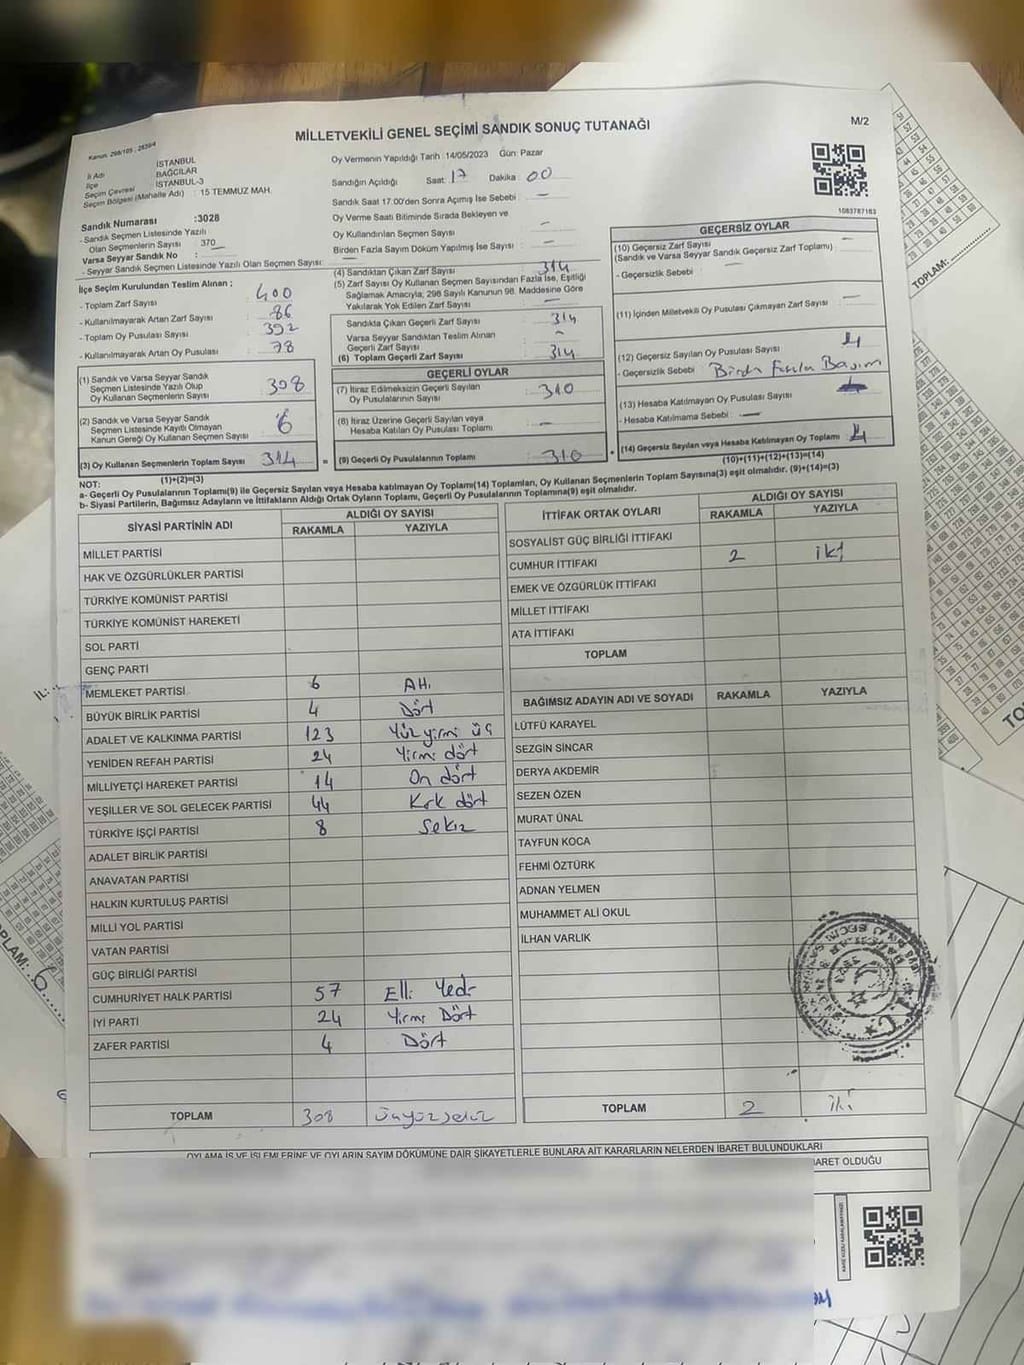 MİLLETVEKİLİ GENEL SEÇİMİ SANDIK SONUÇ TUTANAĞI
M/2
Kanun: 298/105 ; 2839/4
İl Adı İSTANBUL
İlçe BAĞCILAR
Seçim Çevresi İSTANBUL-3
Seçim Bölgesi (Mahalle Adı) : 15 TEMMUZ MAH.
Sandık Numarası :3028
- Sandık Seçmen Listesinde Yazılı
Olan Seçmenlerin Sayısı 370
Varsa Seyyar Sandık No :
- Seyyar Sandık Seçmen Listesinde Yazılı Olan Seçmen Sayısı: —
İlçe Seçim Kurulundan Teslim Alınan ;
- Toplam Zarf Sayısı : 400
- Kullanılmayarak Artan Zarf Sayısı : 86
- Toplam Oy Pusulası Sayısı : 392
- Kullanılmayarak Artan Oy Pusulası : 78
(1) Sandık ve Varsa Seyyar Sandık
Seçmen Listesinde Yazılı Olup
Oy Kullanan Seçmenlerin Sayısı : 308
(2) Sandık ve Varsa Seyyar Sandık
Seçmen Listesinde Kayıtlı Olmayan
Kanun Gereği Oy Kullanan Seçmen Sayısı : 6
(3) Oy Kullanan Seçmenlerin Toplam Sayısı 314
(1)+(2)=(3)
Oy Vermenin Yapıldığı Tarih :14/05/2023 Gün: Pazar
Sandığın Açıldığı Saat: 17 Dakika : 00
Sandık Saat 17.00'den Sonra Açılmış İse Sebebi : —
Oy Verme Saati Bitiminde Sırada Bekleyen ve
Oy Kullandırılan Seçmen Sayısı : —
Birden Fazla Sayım Döküm Yapılmış İse Sayısı : —
(4) Sandıktan Çıkan Zarf Sayısı : 314
(5) Zarf Sayısı Oy Kullanan Seçmen Sayısından Fazla İse, Eşitliği
Sağlamak Amacıyla, 298 Sayılı Kanunun 98. Maddesine Göre
Yakılarak Yok Edilen Zarf Sayısı : —
Sandıkta Çıkan Geçerli Zarf Sayısı : 314
Varsa Seyyar Sandıktan Teslim Alınan
Geçerli Zarf Sayısı : —
(6) Toplam Geçerli Zarf Sayısı : 314
GEÇERLİ OYLAR
(7) İtiraz Edilmeksizin Geçerli Sayılan
Oy Pusulalarının Sayısı : 310
(8) İtiraz Üzerine Geçerli Sayılan veya
Hesaba Katılan Oy Pusulası Toplamı : —
= (9) Geçerli Oy Pusulalarının Toplamı : 310 +
1083787183
GEÇERSİZ OYLAR
(10) Geçersiz Zarf Sayısı : —
(Sandık ve Varsa Seyyar Sandık Geçersiz Zarf Toplamı)
- Geçersizlik Sebebi : —
(11) İçinden Milletvekili Oy Pusulası Çıkmayan Zarf Sayısı : —
(12) Geçersiz Sayılan Oy Pusulası Sayısı : 4
- Geçersizlik Sebebi : Birden Fazla Basım
(13) Hesaba Katılmayan Oy Pusulası Sayısı :
- Hesaba Katılmama Sebebi : —
(14) Geçersiz Sayılan veya Hesaba Katılmayan Oy Toplamı : 4
(10)+(11)+(12)+(13)=(14)
NOT:
a- Geçerli Oy Pusulalarının Toplamı(9) ile Geçersiz Sayılan veya Hesaba katılmayan Oy Toplamı(14) Toplamları, Oy Kullanan Seçmenlerin Toplam Sayısına(3) eşit olmalıdır. (9)+(14)=(3)
b- Siyasi Partilerin, Bağımsız Adayların ve İttifakların Aldığı Ortak Oyların Toplamı, Geçerli Oy Pusulalarının Toplamına(9) eşit olmalıdır.
SİYASİ PARTİNİN ADI ALDIĞI OY SAYISI
RAKAMLA YAZIYLA
MİLLET PARTİSİ
HAK VE ÖZGÜRLÜKLER PARTİSİ
TÜRKİYE KOMÜNİST PARTİSİ
TÜRKİYE KOMÜNİST HAREKETİ
SOL PARTİ
GENÇ PARTİ
MEMLEKET PARTİSİ 6 Altı
BÜYÜK BİRLİK PARTİSİ 4 Dört
ADALET VE KALKINMA PARTİSİ 123 Yüz yirmi üç
YENİDEN REFAH PARTİSİ 24 Yirmi dört
MİLLİYETÇİ HAREKET PARTİSİ 14 On dört
YEŞİLLER VE SOL GELECEK PARTİSİ 44 Kırk dört
TÜRKİYE İŞÇİ PARTİSİ 8 Sekiz
ADALET BİRLİK PARTİSİ
ANAVATAN PARTİSİ
HALKIN KURTULUŞ PARTİSİ
MİLLİ YOL PARTİSİ
VATAN PARTİSİ
GÜÇ BİRLİĞİ PARTİSİ
CUMHURİYET HALK PARTİSİ 57 Elli Yedi
İYİ PARTİ 24 Yirmi Dört
ZAFER PARTİSİ 4 Dört
TOPLAM 308 Üçyüzsekiz
İTTİFAK ORTAK OYLARI ALDIĞI OY SAYISI
RAKAMLA YAZIYLA
SOSYALİST GÜÇ BİRLİĞİ İTTİFAKI
CUMHUR İTTİFAKI 2 iki
EMEK VE ÖZGÜRLÜK İTTİFAKI
MİLLET İTTİFAKI
ATA İTTİFAKI
TOPLAM
BAĞIMSIZ ADAYIN ADI VE SOYADI RAKAMLA YAZIYLA
LÜTFÜ KARAYEL
SEZGİN SİNCAR
DERYA AKDEMİR
SEZEN ÖZEN
MURAT ÜNAL
TAYFUN KOCA
FEHMİ ÖZTÜRK
ADNAN YELMEN
MUHAMMET ALİ OKUL
İLHAN VARLIK
TOPLAM 2 iki
OYLAMA İŞ VE İŞLEMLERİNE VE OYLARIN SAYIM DÖKÜMÜNE DAİR ŞİKAYETLERLE BUNLARA AİT KARARLARIN NELERDEN İBARET BULUNDUKLARI
BARET OLDUĞU
TOPLAM:
İL:
TOPLAM: 6